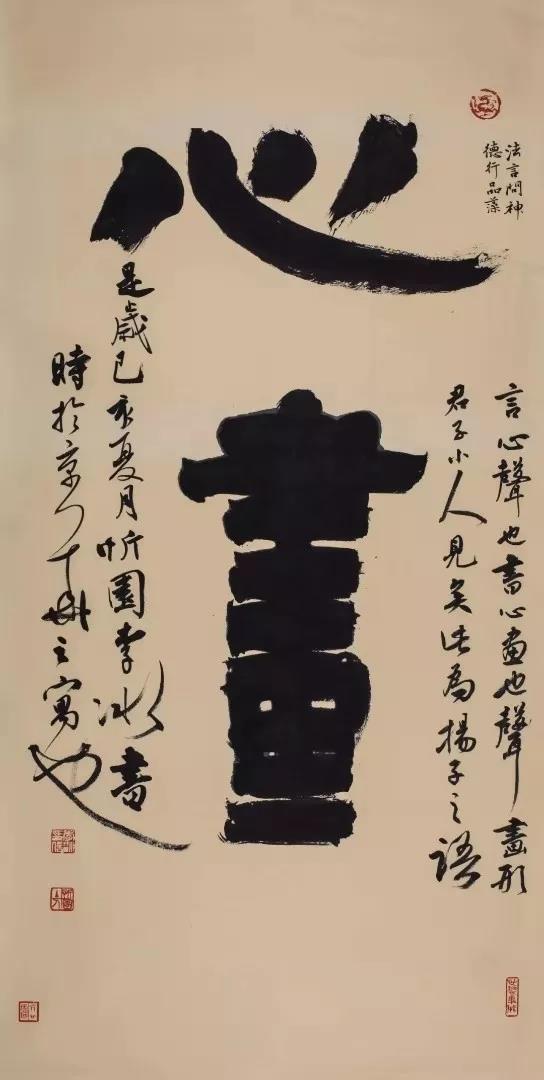 心畫
法言問神
德行品藻
言心聲也書心畫也聲畫形
君子小人見矣此為揚子之語
是歲己亥夏月忻園李冰書
時於京之寓也